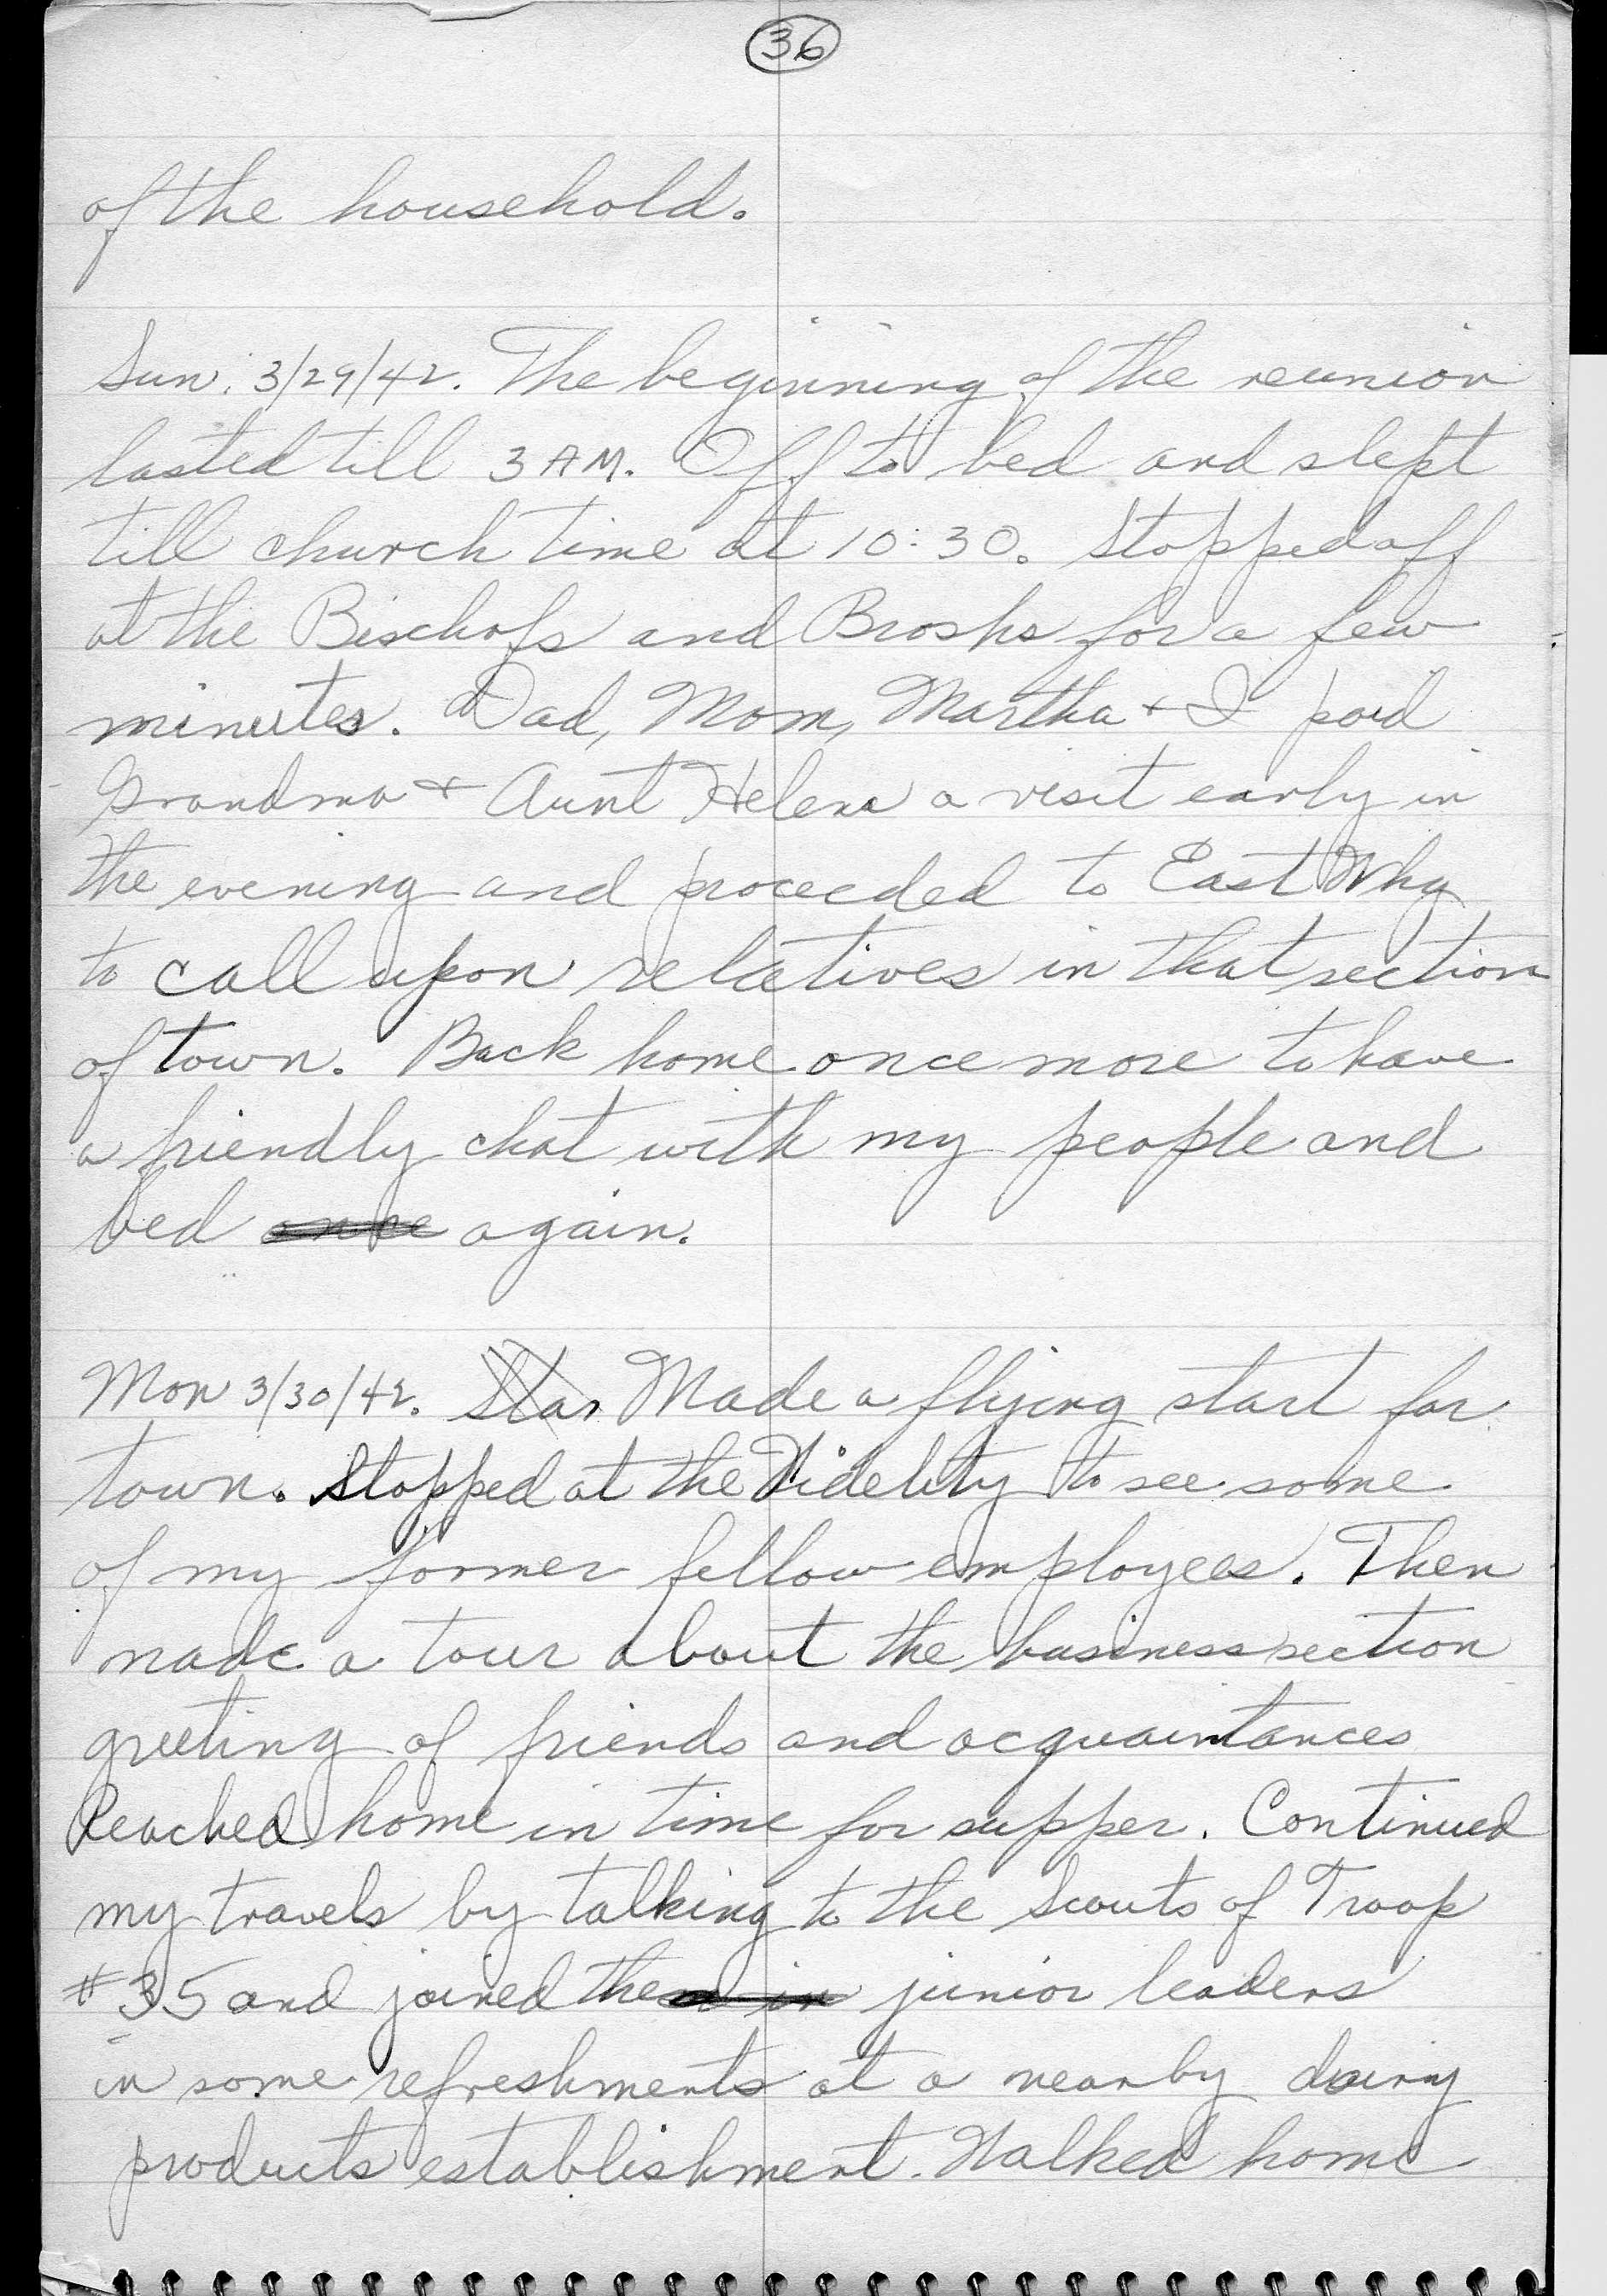 36
of the household.
Sun. 3/29/42. The beginning of the reunion
lasted till 3 AM. Off to bed and slept
till church time at 10:30. Stopped off
at the Bischofs and Broshs for a few
minutes. Dad, Mom, Martha + I paid
Grandma + Aunt Helena a visit early in
the evening and proceeded to East Whg
to call upon relatives in that section
of town. Back home once more to have
a friendly chat with my people and
bed once again.
Mon 3/30/42. Star Made a flying start for
town. Stopped at the Fidelity to see some
of my former fellow employees. Then
made a tour about the business section
greeting of friends and acquaintances
Reached home in time for supper. Continued
my travels by talking to the Scouts of Troop
#35 and joined them in junior leaders
in some refreshments at a nearby dairy
products establishment. Walked home